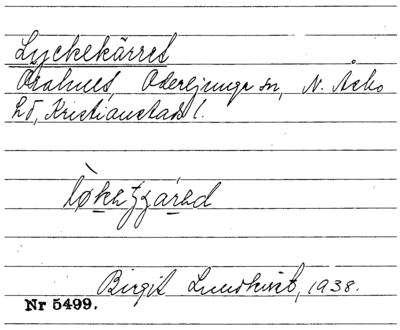 Lyckekärret
Örahult, Oderljunga sn, N. Åsbo
hd, Kristianstads l.
Birgit Lundkvist, 1938.
Nr 5499.